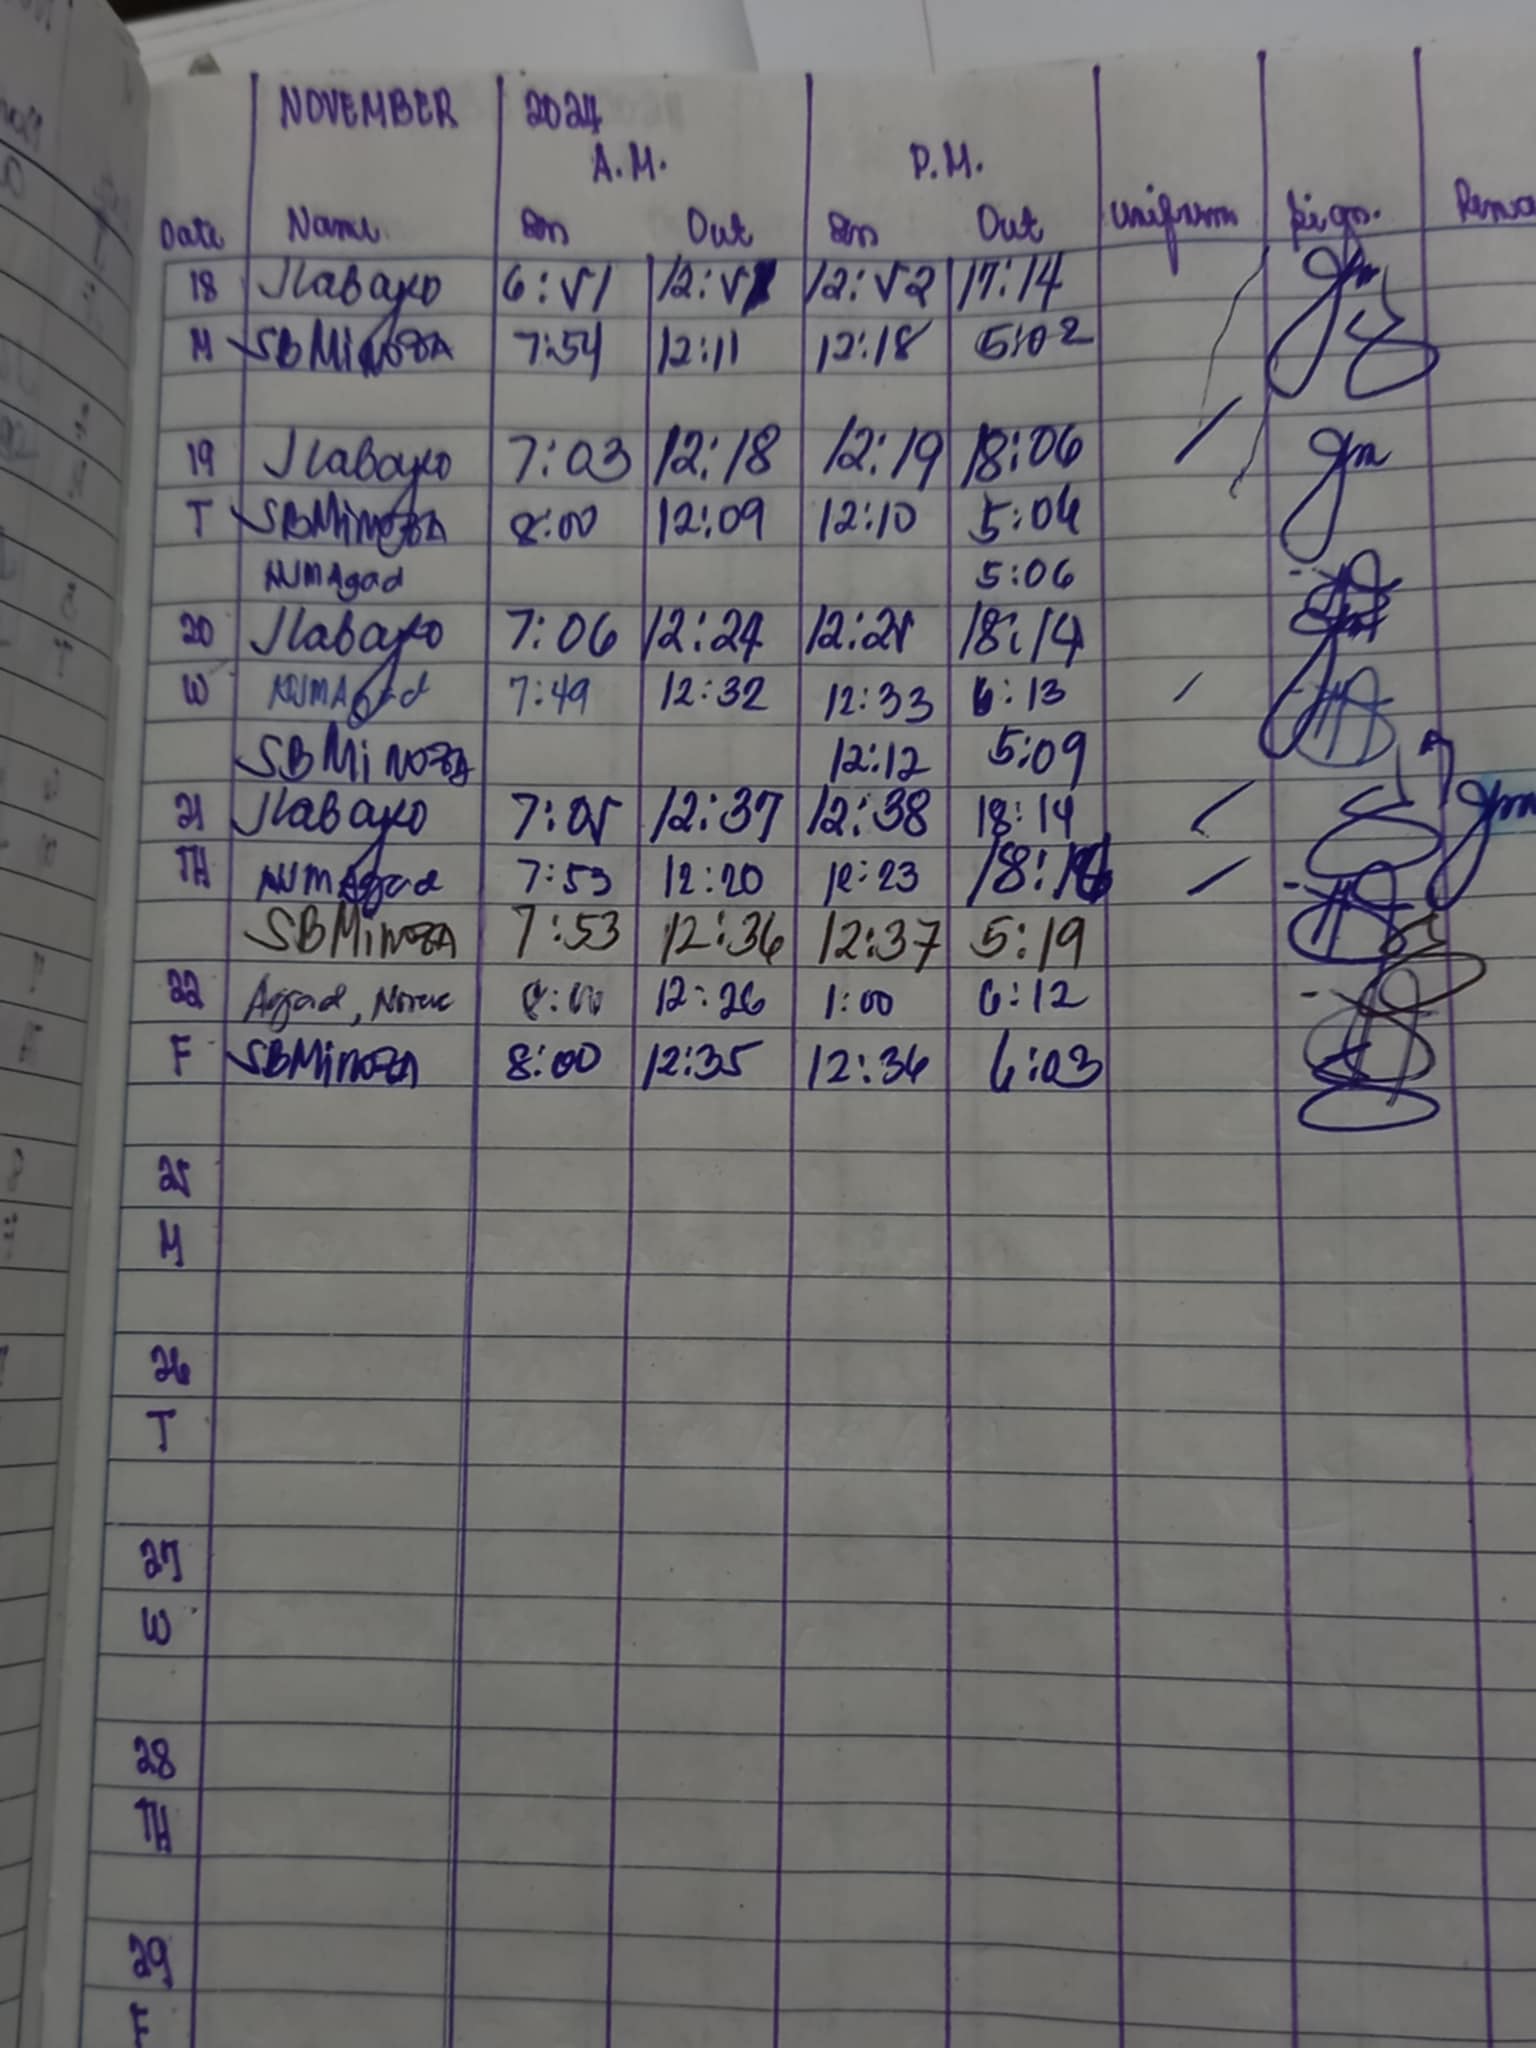 NOVEMBER 2024
A.M. P.M.
Date Name In Out In Out Uniform Sign.
18 Jlabayo 6:51 12:51 12:52 17:14
M SBMinoza 7:54 12:11 12:18 5:02
19 Jlabayo 7:03 12:18 12:19 18:06
T SBMinoza 8:00 12:09 12:10 5:04
NJMAgad 5:06
20 Jlabayo 7:06 12:24 12:25 18:14
W NJMAgad 7:49 12:32 12:33 6:13
SBMinoza 12:12 5:09
21 Jlabayo 7:05 12:37 12:38 18:14
TH NJMAgad 7:53 12:20 12:23 18:16
SBMinoza 7:53 12:36 12:37 5:19
22 Agad, 12:26 1:00 6:12
F SBMinoza 8:00 12:35 12:36 6:03
25
M
26
T
27
W
28
TH
29
F